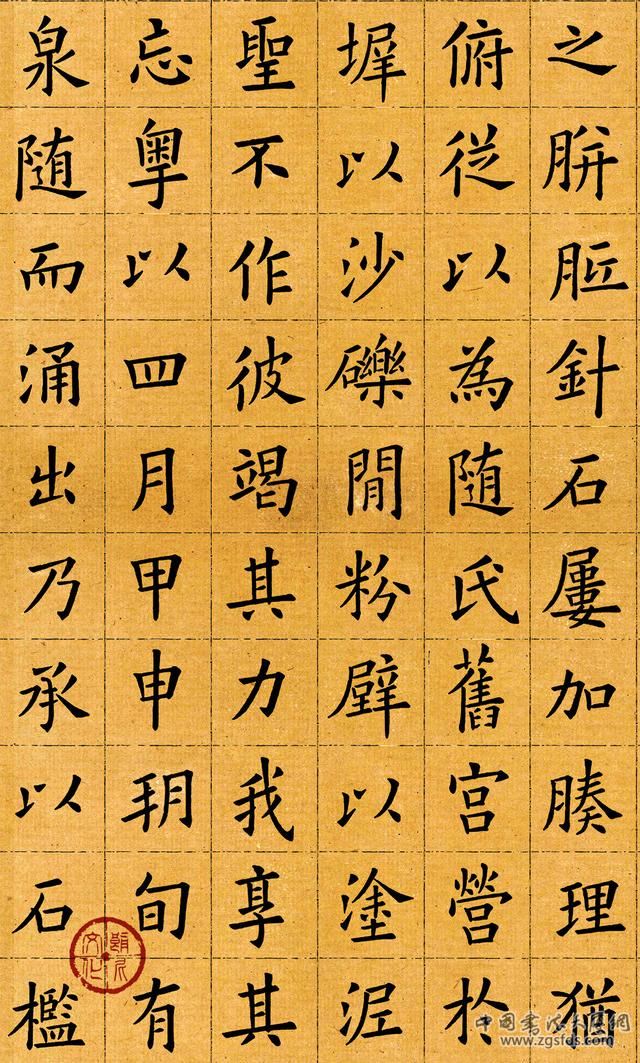 之胼胝針石屢加腠理猶
俯從以為随氏舊宮營於
墀以沙礫閒粉壁以塗泥
聖不作彼竭其力我享其
忘粵以四月甲申朔旬有
泉随而涌出乃承以石檻
www.zgsfds.com